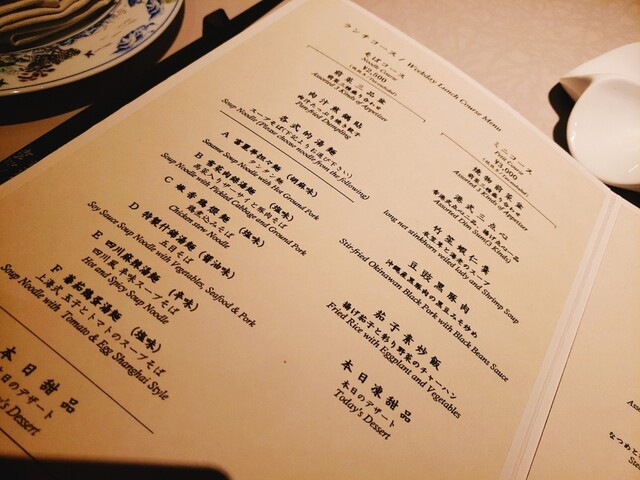 ランチコース / Weekday Lunch Course Menu
そばコース
Noodle Course
¥2,500
前菜三品盛
Assorted 3 kinds of Appetizer
肉汁煎鍋貼
Pan-fried Dumpling
各式的湯麺
スープそば(下記よりお選び下さい)
Soup Noodle (Please choose noodle from the following)
A
(胡麻味)
Sesame Soup Noodle with Hot Ground Pork
B 雪菜肉絲湯麺 (塩味)
Soup Noodle with Pickled Cabbage and Ground Pork
C
(塩味)
Chicken stew Noodle
D 特製什錦湯麺 (醤油味)
五目そば
Soy Sauce Soup Noodle with Vegetables, Seafood & Pork
E 四川麻辣湯麺 (辛味)
四川風 辛味スープそば
Hot and Spicy Soup Noodle
F 蕃茄鶏蛋湯麺 (塩味)
上海式 玉子とトマトのスープそば
Soup Noodle with Tomato & Egg Shanghai Style
本日甜品
本日のデザート
Today's Dessert
ミニコース
Mini Course
¥3,000
Assorted 3 kinds of Appetizer
港式三點心
Assorted Dim Sum(3 Kinds)
竹笙蝦仁羹
long net stinkhorn veiled lady and Shrimp Soup
豆豉黒豚肉
沖縄産黒豚肉の黒豆みそ炒め
Stir-fried Okinawan Black Pork with Black Beans Sauce
茄子素炒飯
揚げ茄子と彩り野菜のチャーハン
Fried Rice with Eggplant and Vegetables
本日凍甜品
本日のデザート
Today's Dessert